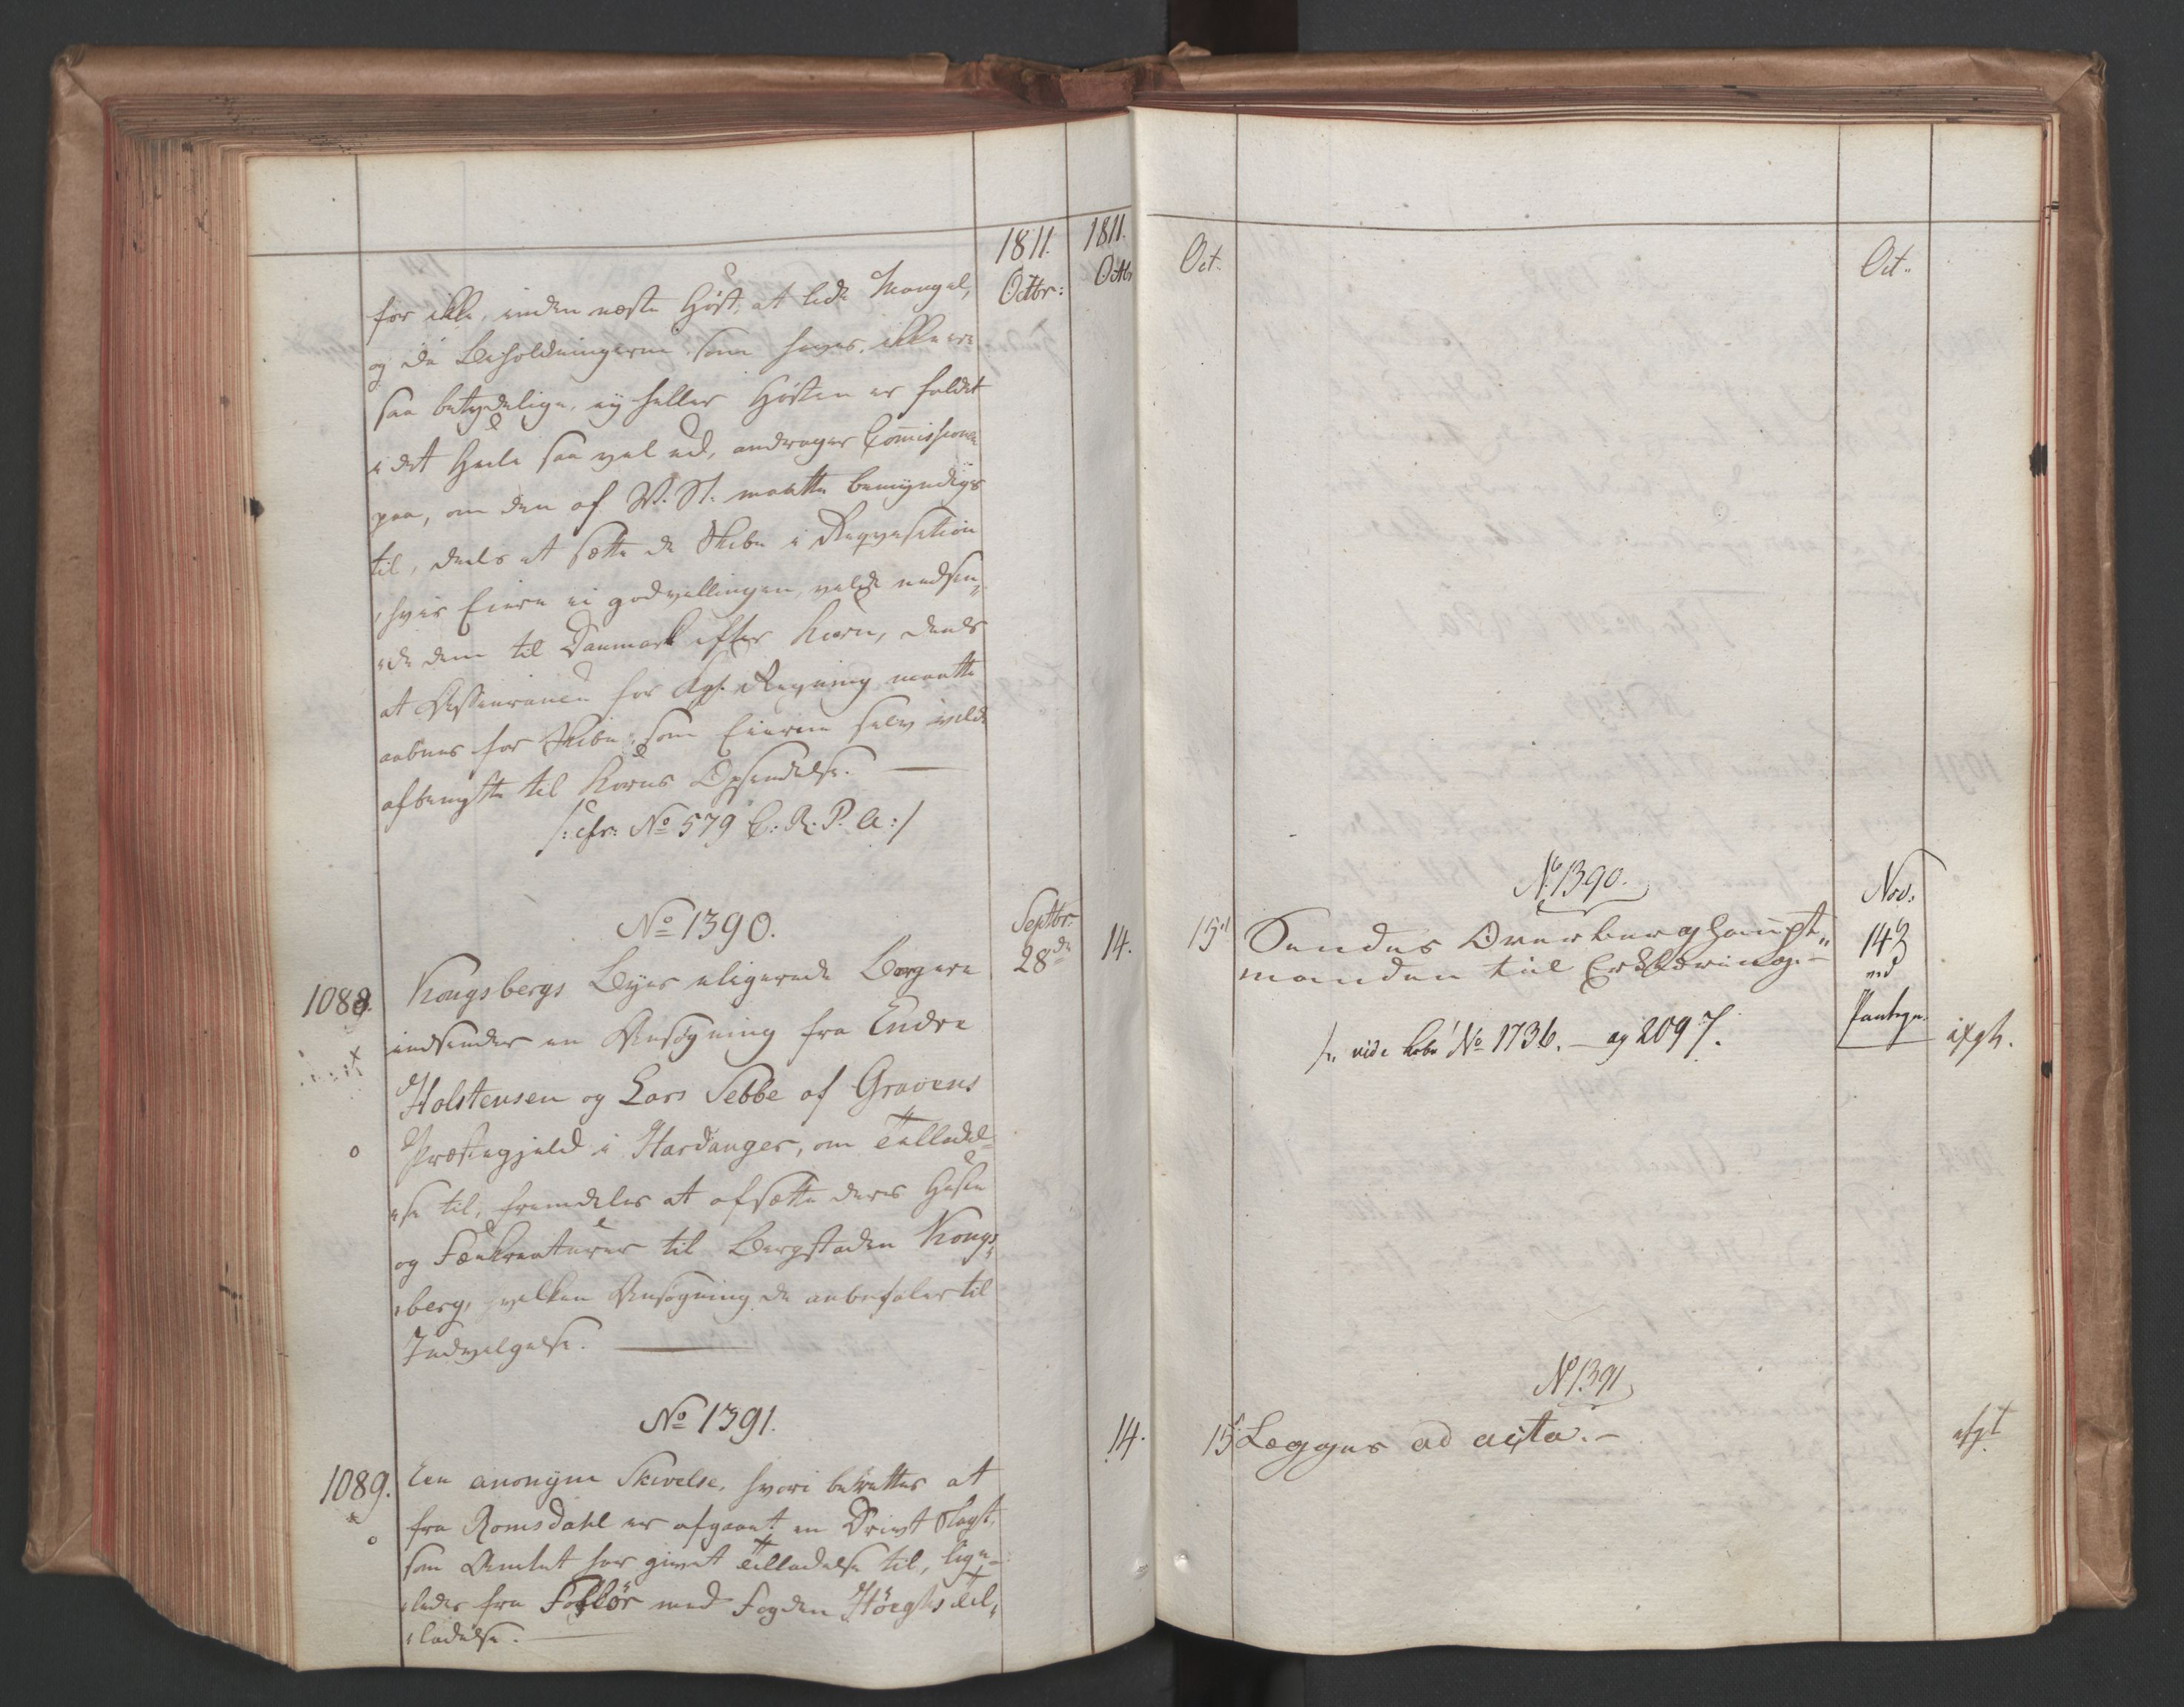 1811.
Octbr:
1811.
Octbr
for ikke, inden næste Høst, at lide Mangel,
og da Beholdningerne, som haves, ikke ere
saa betydelige, ej heller Høsten er faldet
i det Heele saa vel ud, andrager Commissionen
paa, om den af R. St. maatte bemyndiges
til, deels at sætte de Skibe i Reqvisition
hvis Eiere ei godvilligen vilde nedsen„
„de dem til Danmark efter Korn, deels
at Assurance for Kgl. Regning maatte
aabnes for Skibe, som Eierne selv vilde
afbenytte til Korns Opsendelse. —
/: cfr: No 579 C. R. P. A: /
No 1390.
Septbr.
28de
14.
1088.
Kongsbergs Byes eligerede Borgere
indsender en Ansøgning fra Endre
Holstensen og Lars Sebbe af Gravens
Præstegjeld i Hardanger, om Tilladel„
„se til, fremdeles at afsætte deres Heste
og Fækreaturer til Bergstaden Kongs„
„berg, hvilken Ansøgning de anbefaler til
Indvilgelse. —
No 1391.
14.
1089.
Een anonym Skrivelse, hvori berettes at
fra Romsdahl er afgaaet en Drivt Slagt,
som Amtet har givet Tilladelse til, lige„
„ledes fra med Fogden Höeghs Til„
„ladelse. —
Oct.
Oct.
No 1390.
15d
Sendes Overberghaupt„
manden til Erklæring.—
Nov.
143
ved
Paategn.
/„ vide No 1736. — og 2097.
No 1391
15
Lægges ad acta.—